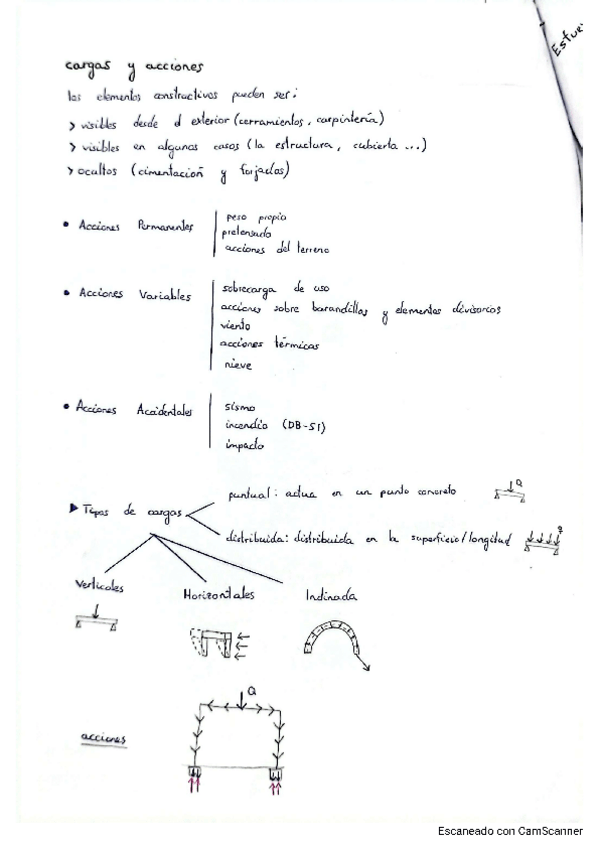 Esfue
cargas y acciones
los elementos constructivos pueden ser:
> visibles desde el exterior (cerramientos, carpintería)
> visibles en algunos casos (la estructura, cubierta ...)
> ocultos (cimentación y forjados)
• Acciones Permanentes
peso propio
pretensado
acciones del terreno
• Acciones Variables
sobrecarga de uso
acciones sobre barandillas y elementos divisorios
viento
acciones térmicas
nieve
• Acciones Accidentales
sismo
incendio (DB-SI)
impacto
Tipos de cargas
puntual: actua en un punto concreto
Q
distribuida: distribuida en la superficie/longitud
q
Verticales
Horizontales
Inclinada
Q
acciones
Escaneado con CamScanner